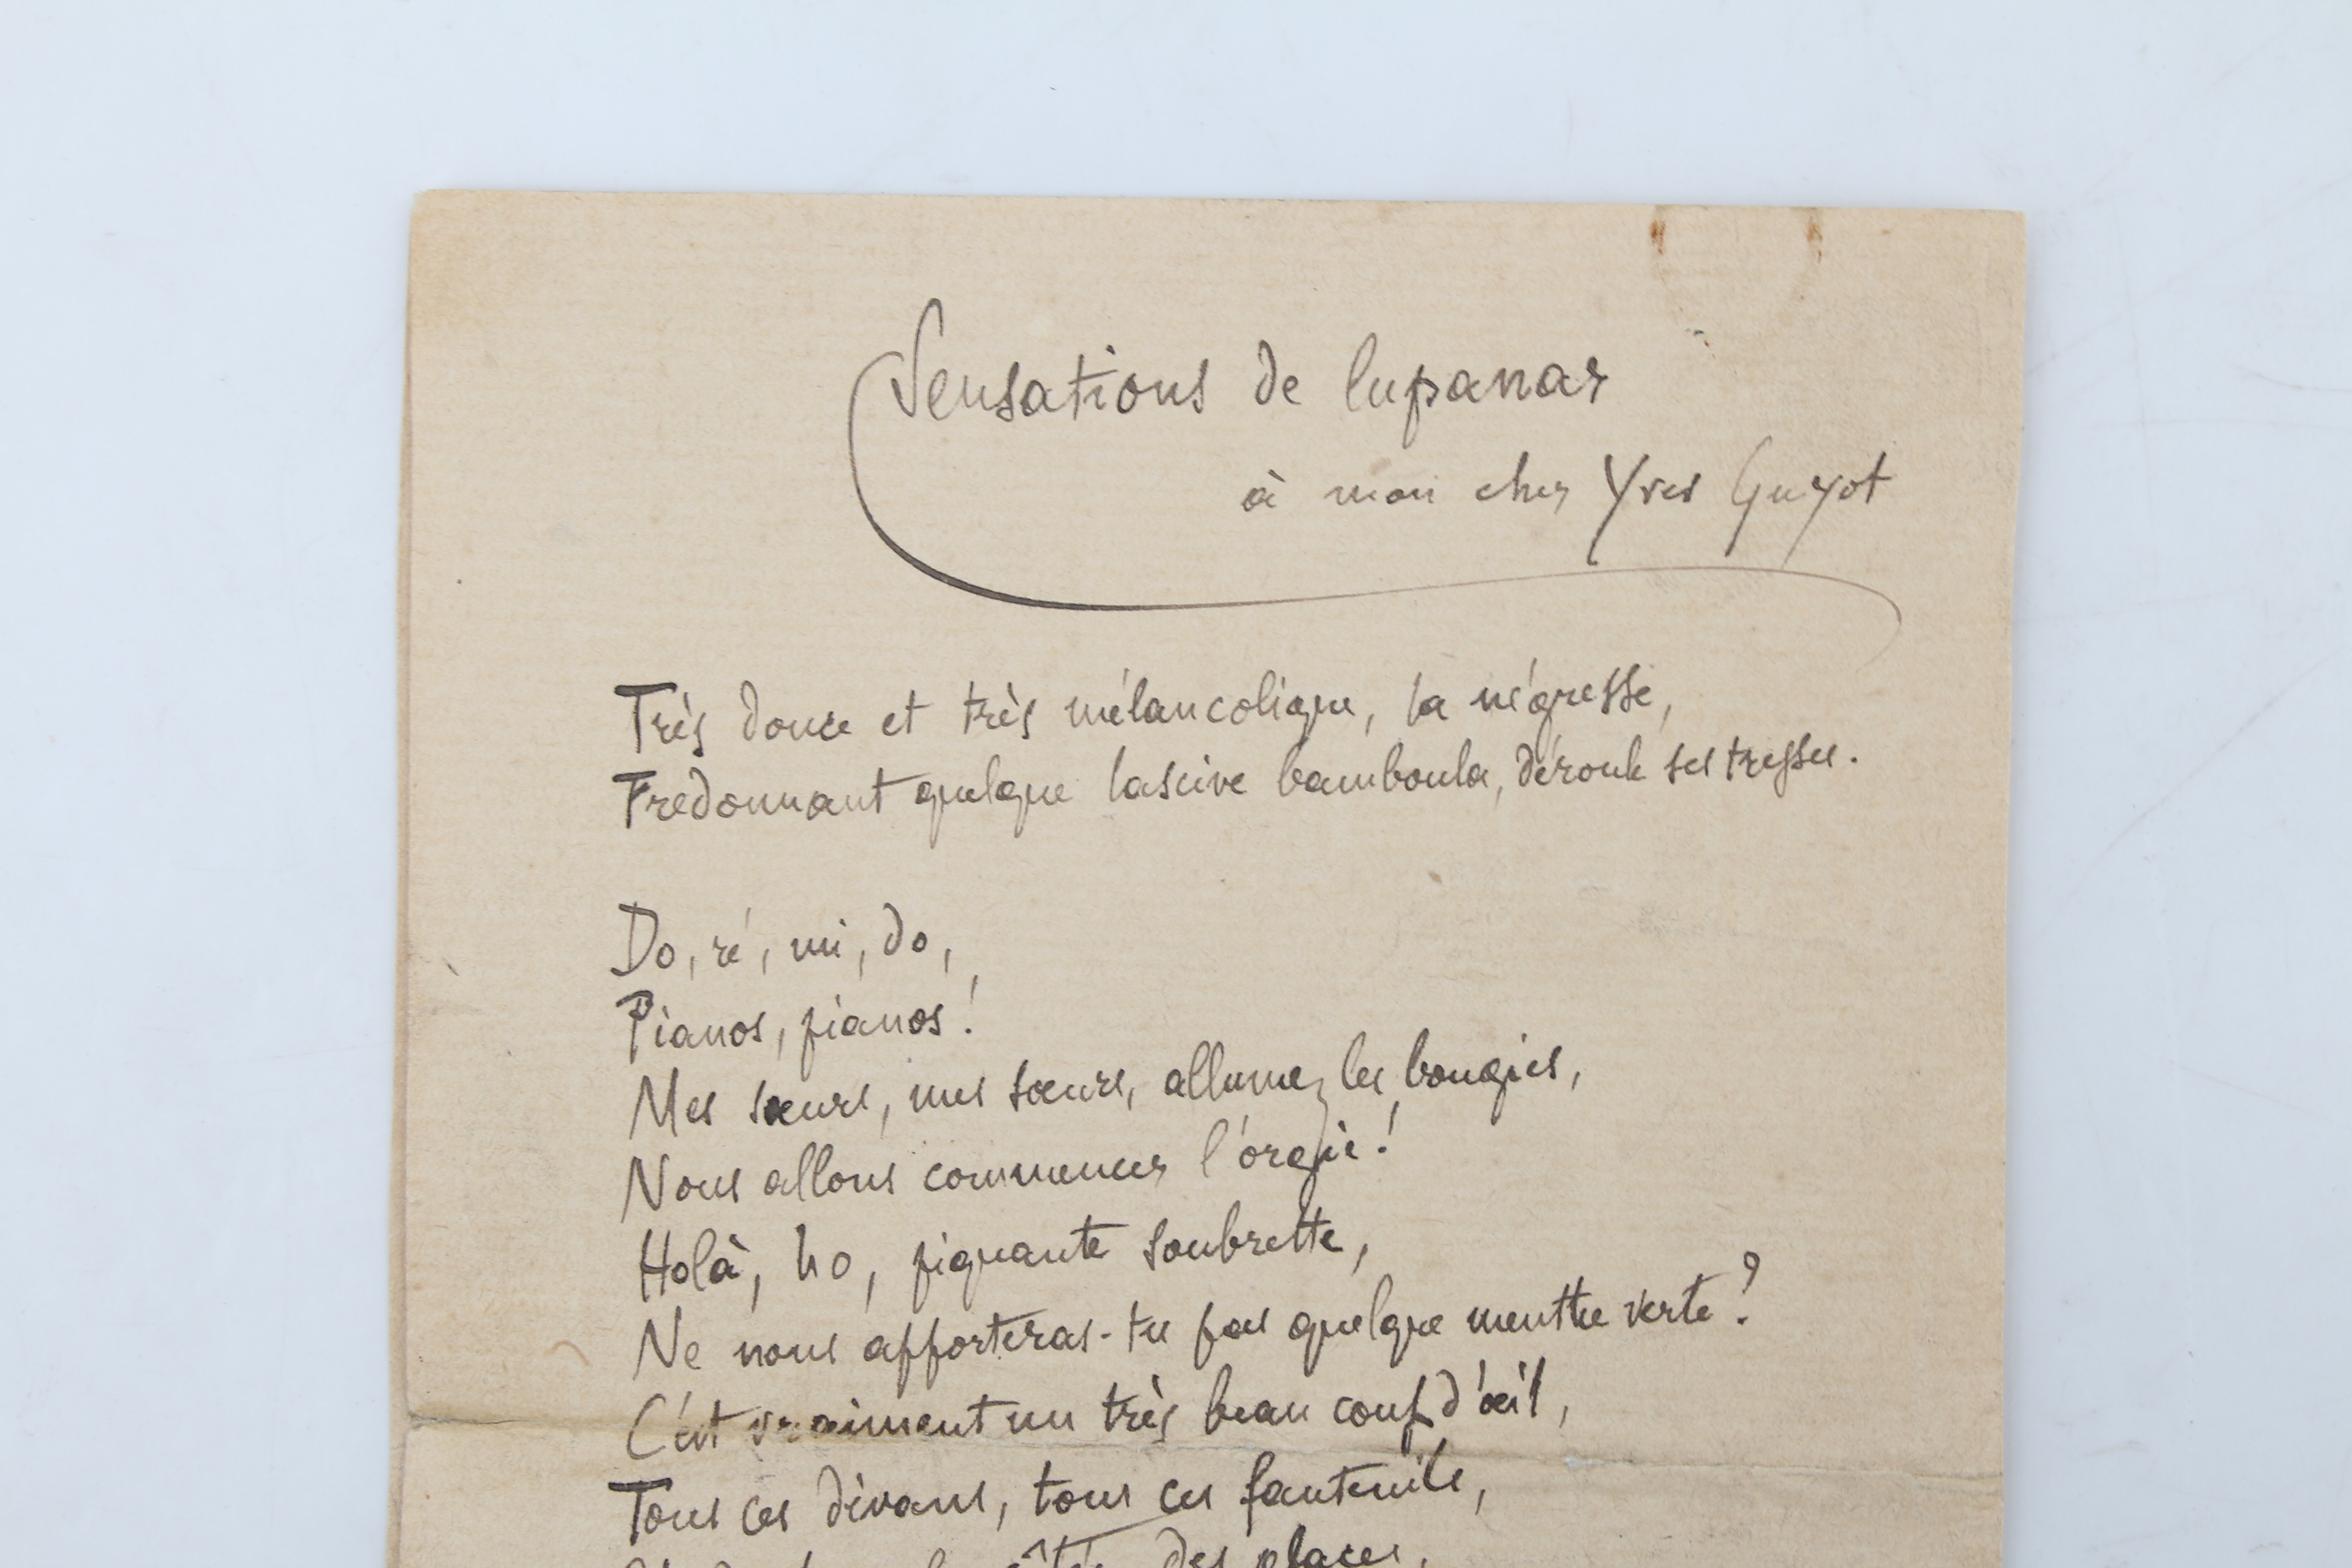 Sensations de lupanar
à mon cher Yves Guyot
Très douce et très mélancolique, la négresse,
Fredonnant quelque lascive bamboula, déroule ses tresses.
Do, ré, mi, do,
Pianos, pianos!
Mes sœurs, mes sœurs, allumez les bougies,
Nous allons commencer l'orgie!
Holà, ho, piquante soubrette,
Ne nous apporteras-tu pas quelque menthe verte?
C'est vraiment un très beau coup d'œil,
Tous ces divans, tous ces fauteuils,
côtés des places,